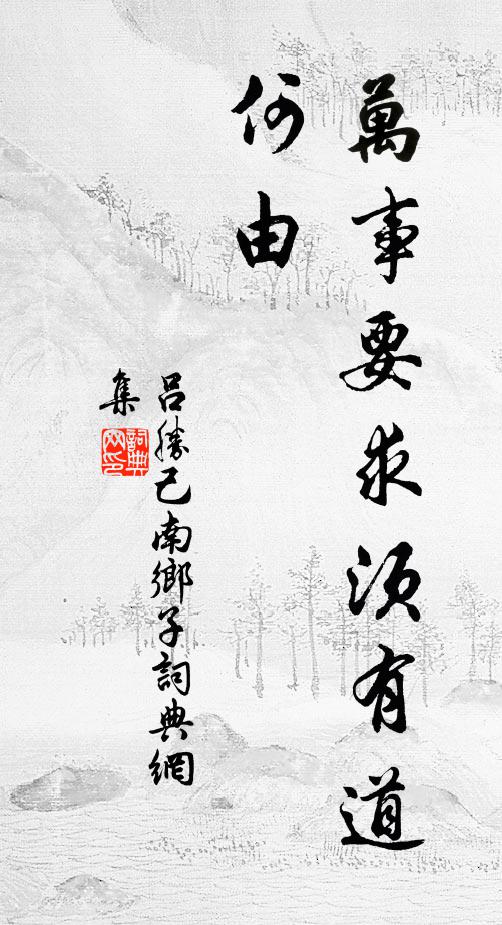 萬事要求須有道
何由
呂勝己南鄉子詞典網
集
詞典
网印